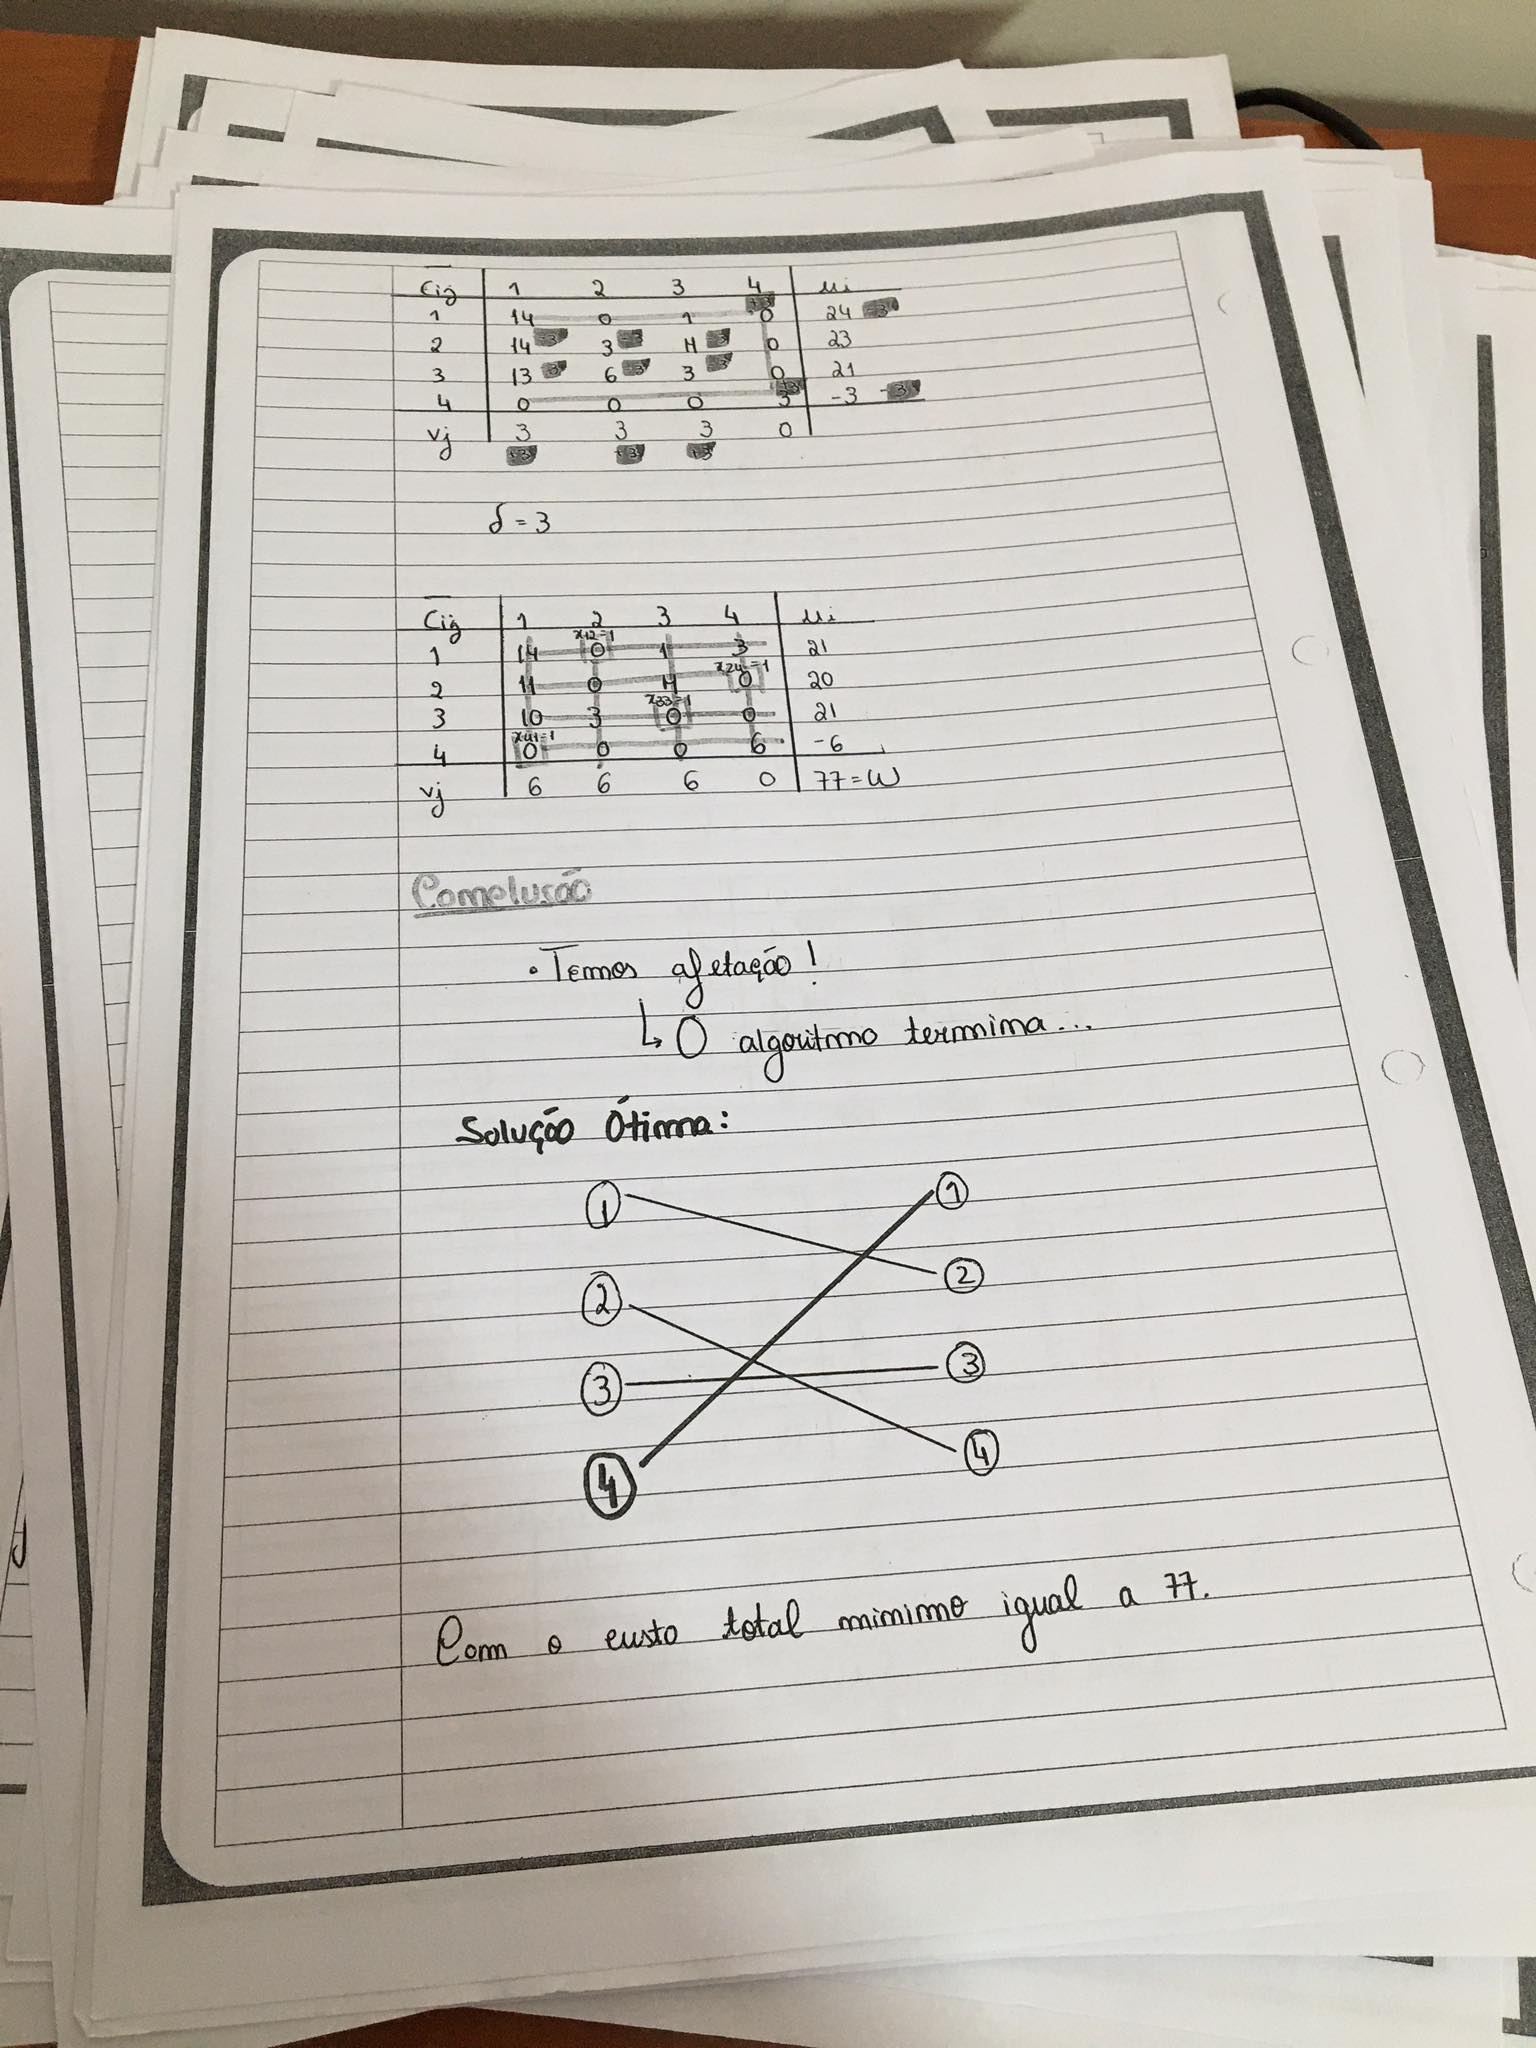 Cij 1 2 3 4 ui
+3
1 14 0 1 0 24 -3
2 14 -3 3 -3 M -3 0 23
3 13 -3 6 -3 3 -3 0 21
+3
4 0 0 0 3 -3 -3
vj 3 3 3 0
+3 +3 +3
δ = 3
Cij 1 2 3 4 ui
x12=1
1 14 0 1 3 21
x24=1
2 11 0 M 0 20
x33=1
3 10 3 0 0 21
x41=1
4 0 0 0 6 -6
vj 6 6 6 0 77 = W
Conclusão
• Temos afetação!
↳ O algoritmo termina...
Solução Ótima:
1 1
2 2
3 3
4 4
Com o custo total minimo igual a 77.